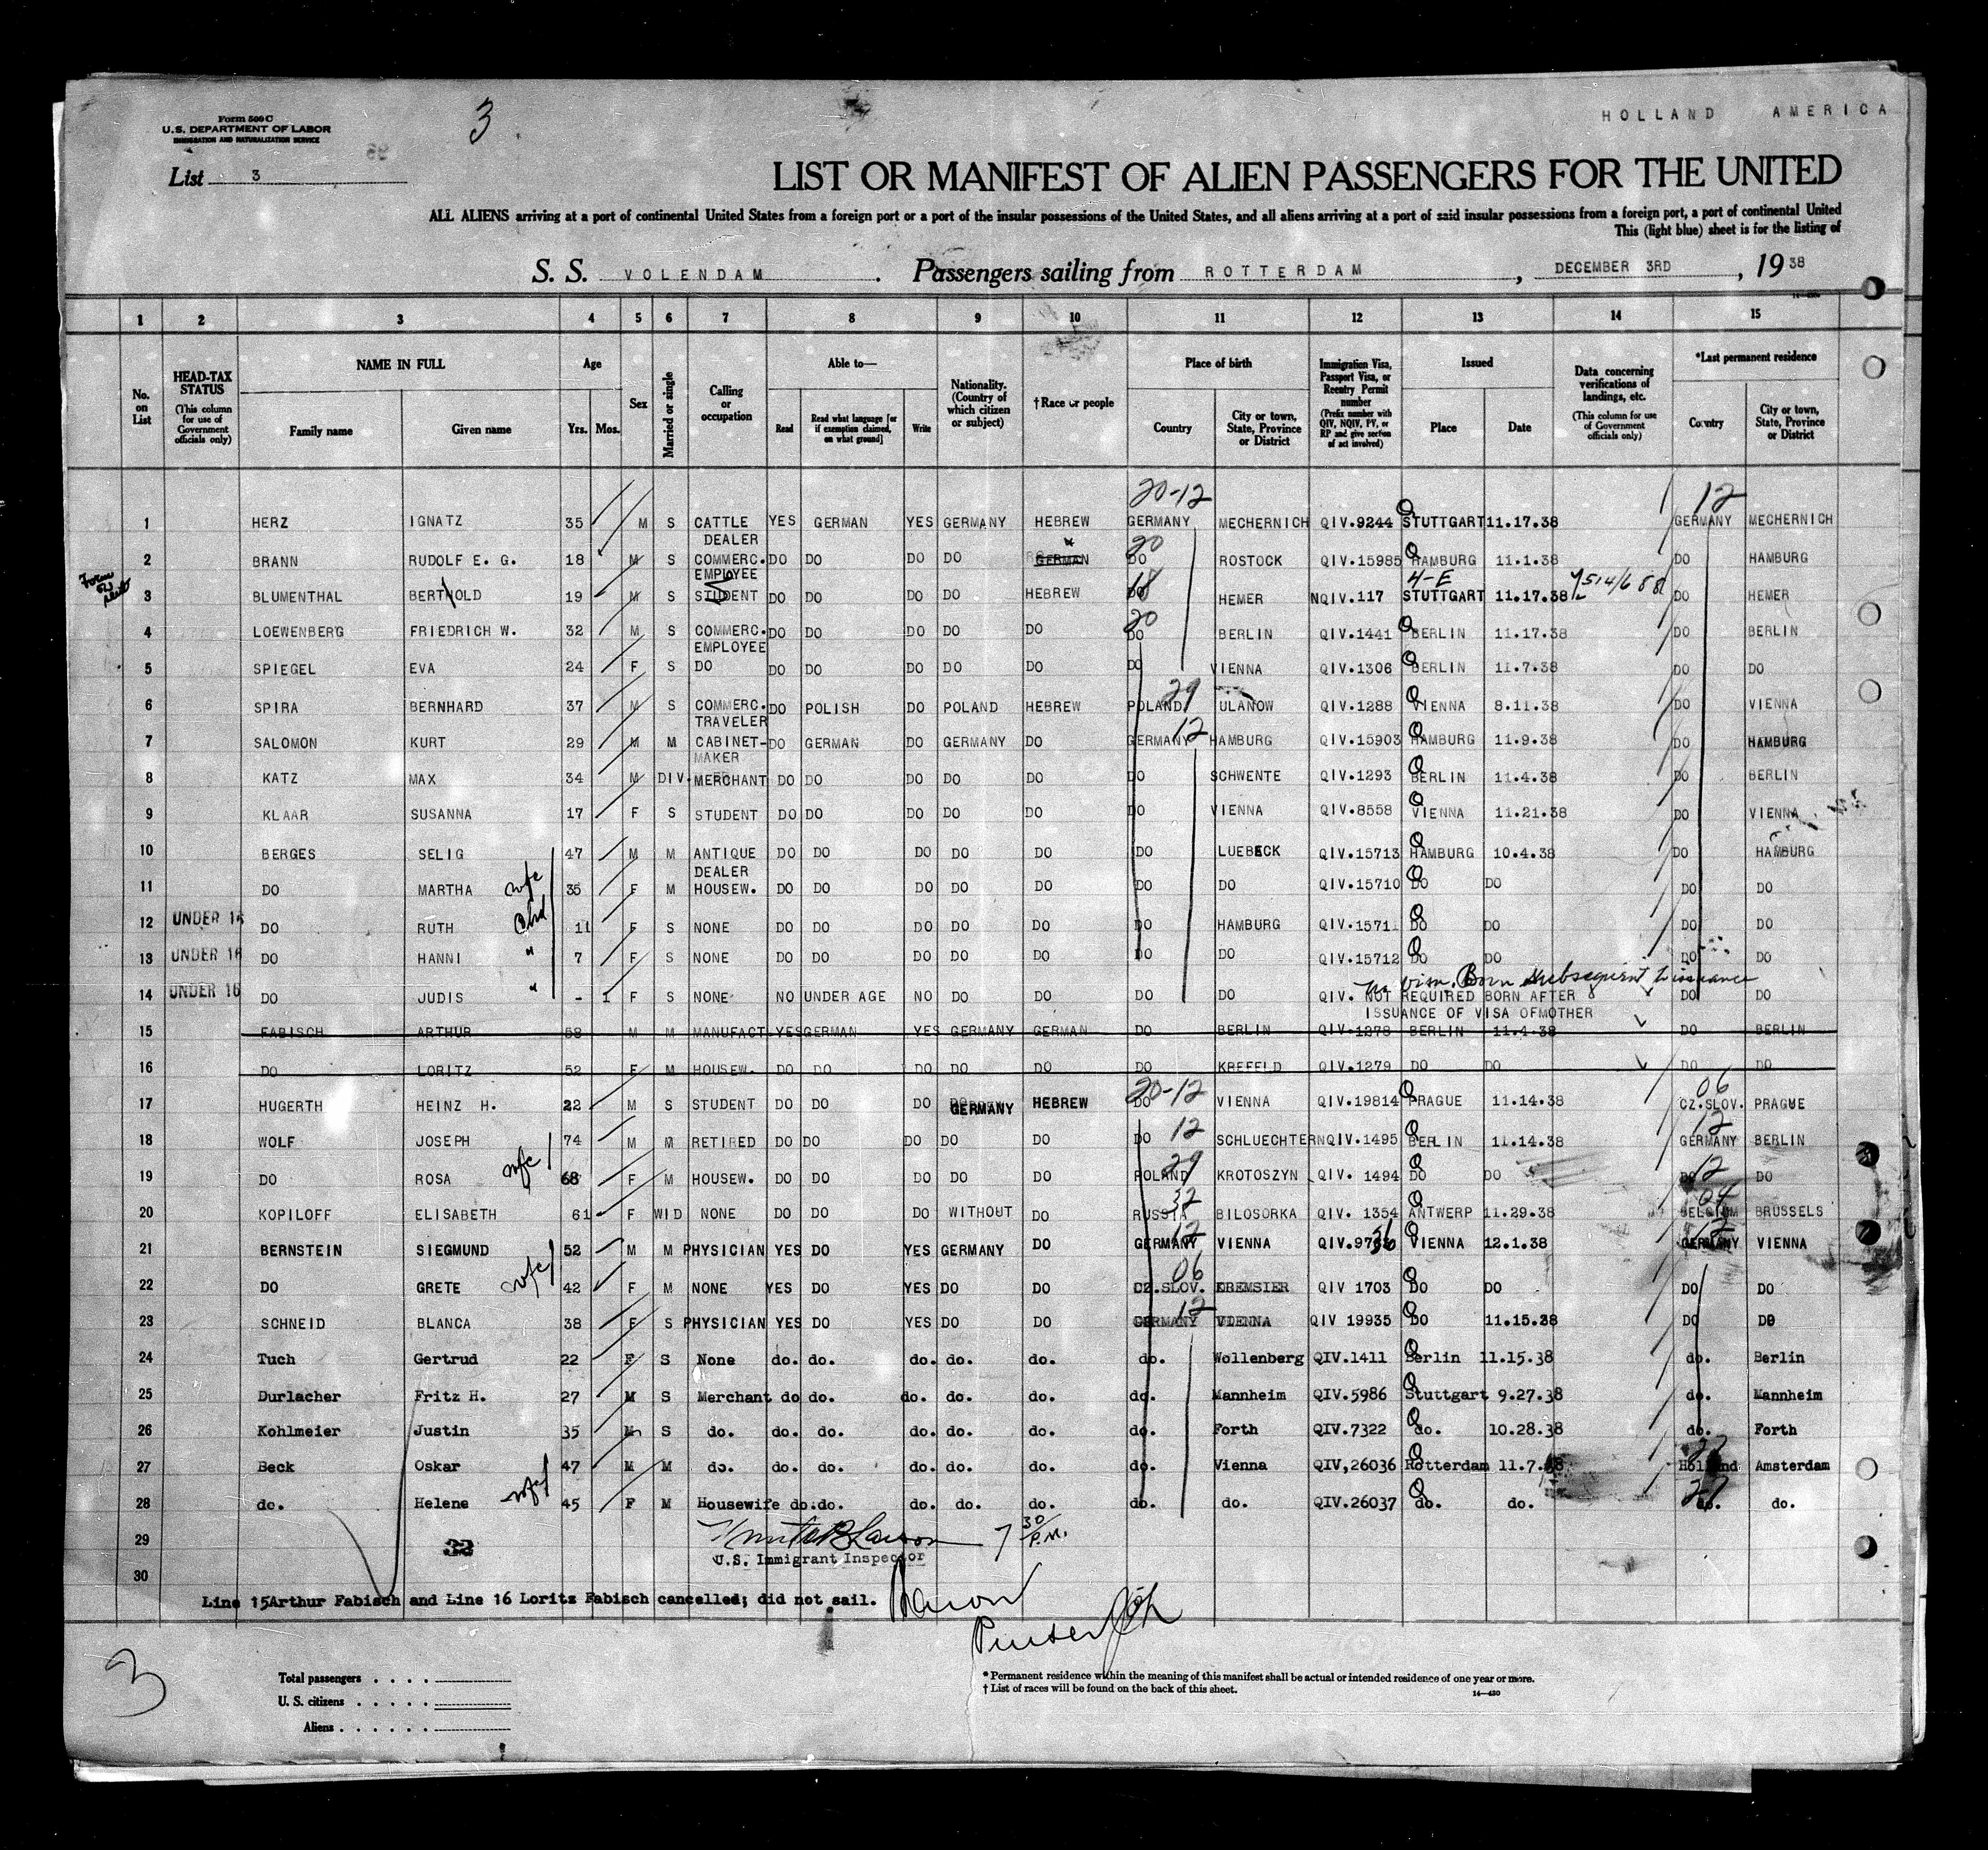 Form 500 C
U.S. DEPARTMENT OF LABOR
IMMIGRATION AND NATURALIZATION SERVICE
3
HOLLAND AMERICA
List 3
LIST OR MANIFEST OF ALIEN PASSENGERS FOR THE UNITED
ALL ALIENS arriving at a port of continental United States from a foreign port or a port of the insular possessions of the United States, and all aliens arriving at a port of said insular possessions from a foreign port, a port of continental United
This (light blue) sheet is for the listing of
S. S. VOLENDAM . Passengers sailing from ROTTERDAM , DECEMBER 3RD , 19 38
1 2 3 4 5 6 7 8 9 10 11 12 13 14 15
No. on List
HEAD-TAX STATUS (This column for use of Government officials only)
NAME IN FULL
Family name Given name
Age
Yrs. Mos.
Sex
Married or single
Calling or occupation
Able to—
Read
Read what language [or if exemption claimed, on what ground]
Write
Nationality. (Country of which citizen or subject)
†Race or people
Place of birth
Country
City or town, State, Province or District
Immigration Visa, Passport Visa, or Reentry Permit number (Prefix number with QIV, NQIV, PV, or RP and give section of act involved)
Issued
Place Date
Data concerning verifications of landings, etc. (This column for use of Government officials only)
*Last permanent residence
Country
City or town, State, Province or District
20-12 12
1 HERZ IGNATZ 35 M S CATTLE DEALER YES GERMAN YES GERMANY HEBREW GERMANY MECHERNICH QIV.9244 STUTTGART 11.17.38 GERMANY MECHERNICH
2 BRANN RUDOLF E. G. 18 M S COMMERC. EMPLOYEE DO DO DO DO GERMAN DO 20 ROSTOCK QIV.15985 HAMBURG 11.1.38 DO HAMBURG
3 BLUMENTHAL BERTHOLD 19 M S STUDENT DO DO DO DO HEBREW DO 18 HEMER NQIV.117 4-E STUTTGART 11.17.38 DO HEMER
4 LOEWENBERG FRIEDRICH W. 32 M S COMMERC. EMPLOYEE DO DO DO DO DO DO 20 BERLIN QIV.1441 BERLIN 11.17.38 DO BERLIN
5 SPIEGEL EVA 24 F S DO DO DO DO DO DO DO VIENNA QIV.1306 BERLIN 11.7.38 DO DO
6 SPIRA BERNHARD 37 M S COMMERC. TRAVELER DO POLISH DO POLAND HEBREW POLAND 29 ULANOW QIV.1288 VIENNA 8.11.38 DO VIENNA
7 SALOMON KURT 29 M M CABINET-MAKER DO GERMAN DO GERMANY DO GERMANY 12 HAMBURG QIV.15903 HAMBURG 11.9.38 DO HAMBURG
8 KATZ MAX 34 M DIV. MERCHANT DO DO DO DO DO DO SCHWENTE QIV.1293 BERLIN 11.4.38 DO BERLIN
9 KLAAR SUSANNA 17 F S STUDENT DO DO DO DO DO DO VIENNA QIV.8558 VIENNA 11.21.38 DO VIENNA
10 BERGES SELIG 47 M M ANTIQUE DEALER DO DO DO DO DO DO LUEBECK QIV.15713 HAMBURG 10.4.38 DO HAMBURG
11 DO MARTHA wfe 35 F M HOUSEW. DO DO DO DO DO DO DO QIV.15710 DO DO DO DO
12 UNDER 16 DO RUTH Chd 11 F S NONE DO DO DO DO DO DO HAMBURG QIV.1571 DO DO DO DO
13 UNDER 16 DO HANNI " 7 F S NONE DO DO DO DO DO DO DO QIV.15712 DO DO DO DO
No visa. Born subsequent to issuance
14 UNDER 16 DO JUDIS " - 1 F S NONE NO UNDER AGE NO DO DO DO DO QIV. NOT REQUIRED BORN AFTER ISSUANCE OF VISA OFMOTHER DO DO
15 FABISCH ARTHUR 58 M M MANUFACT. YES GERMAN YES GERMANY GERMAN DO BERLIN QIV.1278 BERLIN 11.4.38 DO BERLIN
16 DO LORITZ 52 F M HOUSEW. DO DO DO DO DO DO KREFELD QIV.1279 DO DO DO DO
17 HUGERTH HEINZ H. 22 M S STUDENT DO DO DO GERMANY HEBREW DO 20-12 VIENNA QIV.19814 PRAGUE 11.14.38 06 CZ.SLOV. PRAGUE
18 WOLF JOSEPH 74 M M RETIRED DO DO DO DO DO DO 12 SCHLUECHTERN QIV.1495 BERLIN 11.14.38 12 GERMANY BERLIN
19 DO ROSA wfe 68 F M HOUSEW. DO DO DO DO DO POLAND 29 KROTOSZYN QIV. 1494 DO DO DO 12 DO
20 KOPILOFF ELISABETH 61 F WID NONE DO DO DO WITHOUT DO RUSSIA 32 BILOSORKA QIV. 1354 ANTWERP 11.29.38 04 BELGIUM BRUSSELS
21 BERNSTEIN SIEGMUND 52 M M PHYSICIAN YES DO YES GERMANY DO GERMANY 12 VIENNA QIV.97 36 VIENNA 12.1.38 12 GERMANY VIENNA
22 DO GRETE wfe 42 F M NONE YES DO YES DO DO CZ.SLOV. 06 KREMSIER QIV 1703 DO DO DO DO
23 SCHNEID BLANCA 38 F S PHYSICIAN YES DO YES DO DO GERMANY 12 VIENNA QIV 19935 DO 11.15.38 DO DO
24 Tuch Gertrud 22 F S None do. do. do. do. do. do. Wollenberg QIV.1411 Berlin 11.15.38 do. Berlin
25 Durlacher Fritz H. 27 M S Merchant do do. do. do. do. do. Mannheim QIV.5986 Stuttgart 9.27.38 do. Mannheim
26 Kohlmeier Justin 35 M S do. do. do. do. do. do. do. Forth QIV.7322 do. 10.28.38 do. Forth
27 Beck Oskar 47 M M do. do. do. do. do. do. do. Vienna QIV,26036 Rotterdam 11.7.38 Holland Amsterdam
28 do. Helene wfe 45 F M Housewife do. do. do. do. do. do. do. QIV.26037 do. do. do. do.
29 32 7 30 P.M.
U.S. Immigrant Inspector
30
Line 15Arthur Fabisch and Line 16 Loritz Fabisch cancelled; did not sail.
3
Total passengers . . . .
U. S. citizens . . . . .
Aliens . . . . . .
* Permanent residence within the meaning of this manifest shall be actual or intended residence of one year or more.
† List of races will be found on the back of this sheet.
14—430